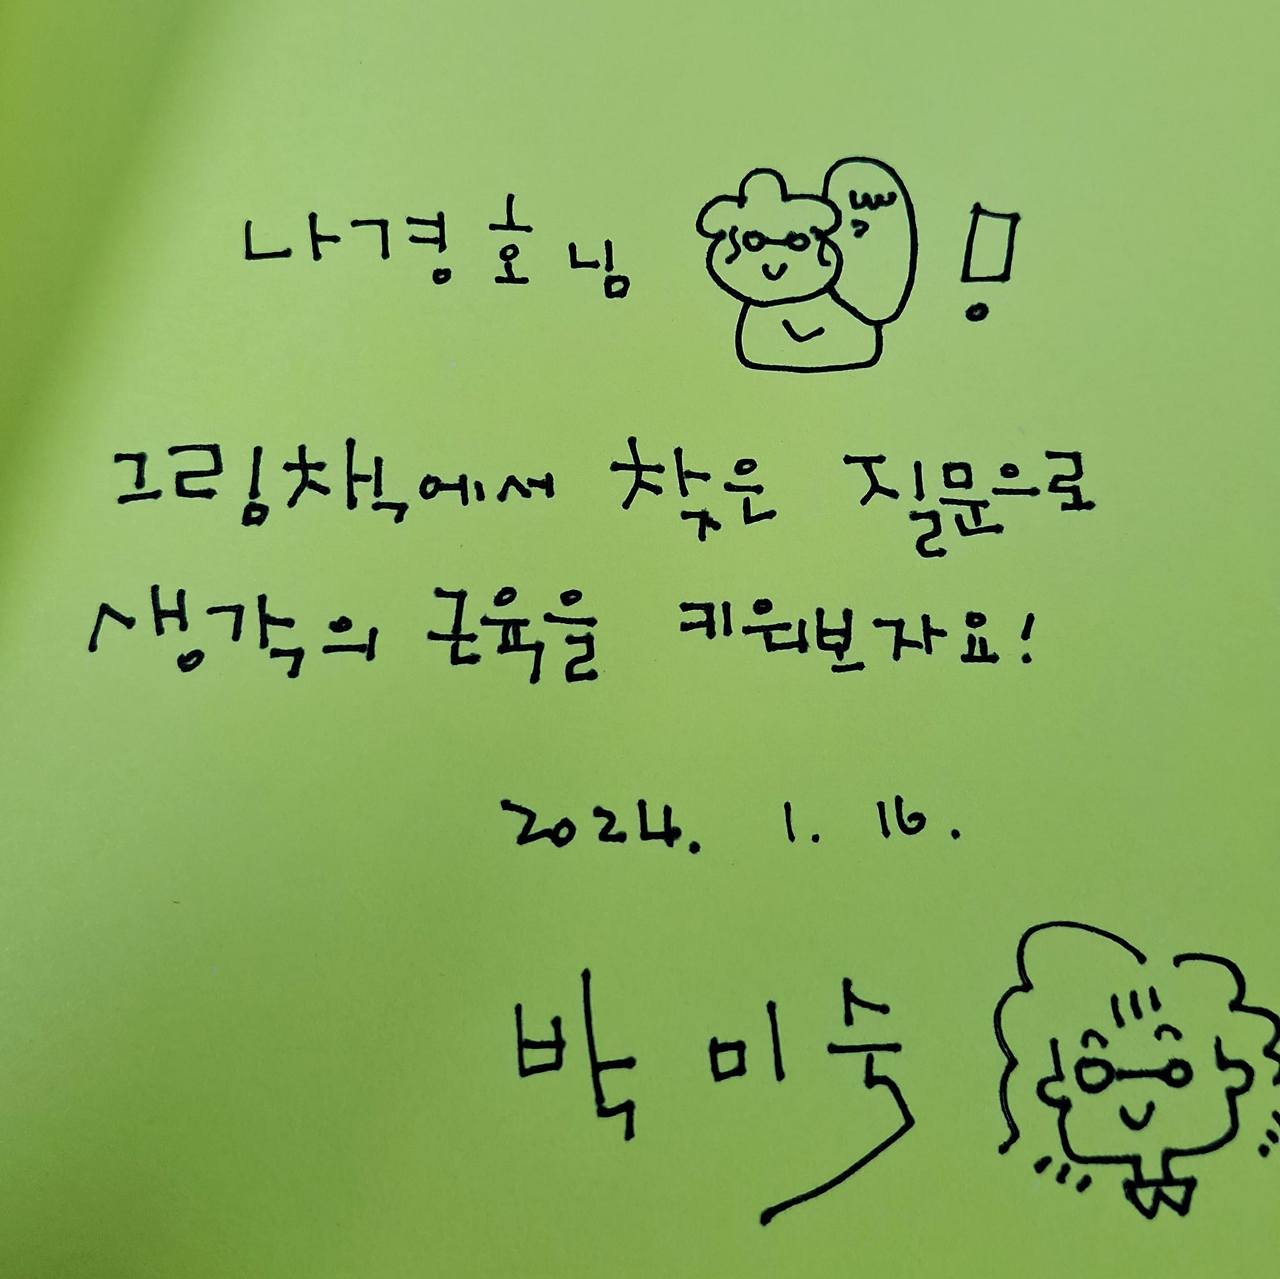 나경호님 !
그림책에서 찾은 질문으로
생각의 근육을 키워보자요!
2024. 1. 16.
박 미숙